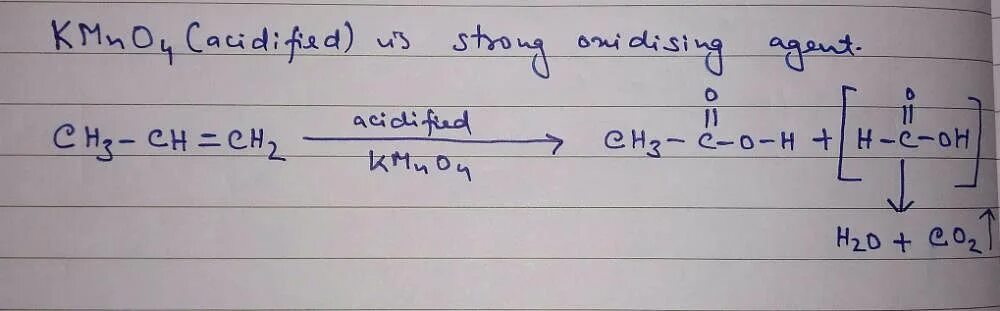 KMnO4 (acidified) is strong oxidising agent.
CH3-CH=CH2 acidified KMnO4 → CH3-C-O-H + [H-C-OH]
O O
H2O + CO2↑